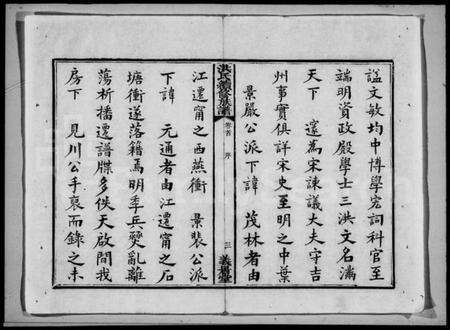 諡文敏均中博學宏詞科官至
端明資政殿學士三洪文名滿
天下　邃為宋諫議大夫守吉
州事實俱詳宋史至明之中葉
景嚴公派下諱　茂林者由
洪氏續修族譜
卷首　序
三
江遷甯之西燕衝　景裴公派
下諱　元通者由江遷甯之石
塘衝遂落籍焉明季兵燹亂離
蕩析播遷譜牒多佚天啟間我
房下　見川公手裒而錄之未